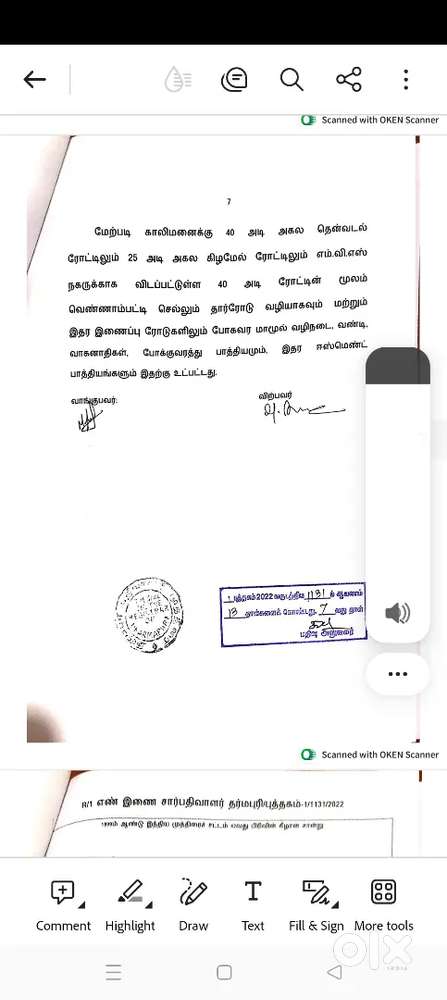 Scanned with OKEN Scanner
7
மேற்படி காலிமனைக்கு 40 அடி அகல தென்வடல்
ரோட்டிலும் 25 அடி அகல கிழமேல் ரோட்டிலும் எம்.வி.எஸ்
நகருக்காக விடப்பட்டுள்ள 40 அடி ரோட்டின் மூலம்
வெண்ணாம்பட்டி செல்லும் தார்ரோடு வழியாகவும் மற்றும்
இதர இணைப்பு ரோடுகளிலும் போகவர மாமூல் வழிநடை, வண்டி,
வாகனாதிகள், போக்குவரத்து பாத்தியமும், இதர ஈஸ்மெண்ட்
பாத்தியங்களும் இதற்கு உட்பட்டது.
வாங்குபவர்:
விற்பவர்
1 புத்தகம் 2022 வருடத்திய 1131 ம் ஆவணம்
13 தாள்களைக் கொண்டது. 7 வது தாள்
பதிவு அலுவலர்
Scanned with OKEN Scanner
R/1 எண் இணை சார்பதிவாளர் தர்மபுரி/புத்தகம்-1/1131/2022
ஆண்டு இந்திய முத்திரைச் சட்டம் பிரிவின் கீழான சான்று
Comment
Highlight
Draw
Text
Fill & Sign
More tools
olx
INDIA